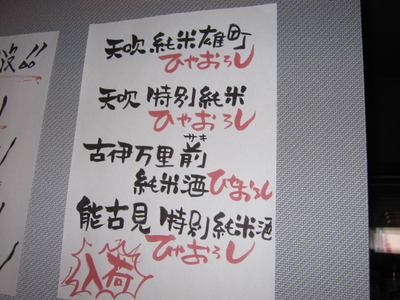 天吹 純米雄町
ひやおろし
天吹 特別純米
ひやおろし
サキ
古伊万里前
純米酒ひやおろし
能古見 特別純米酒
ひやおろし
入荷